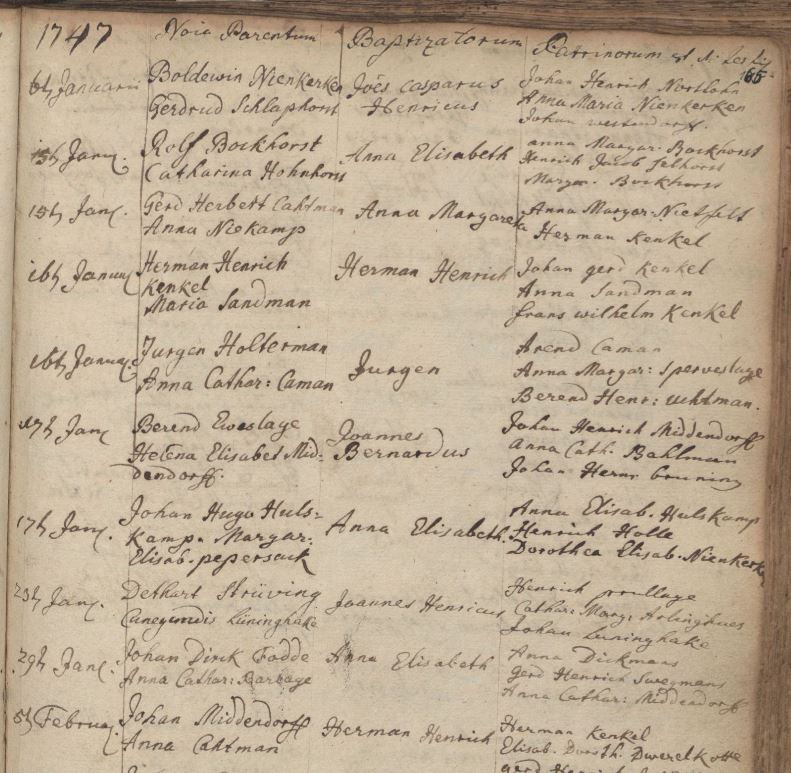 1747 Noia Parentum Baptizatorum Patrinorum et
6th Januarii Boldewin Nienkerken Joës Casparus Johan Henrich Nortlohn
Gerdrud Schlaphorst Henricus Anna Maria Nienkerken
Johan Westendorff.
15th Janu. Rolf Bockhorst Anna Elisabeth anna Margar. Bockhorst
Catharina Hohnhorst Henrich Jacob Selhorst
Margar. Bockhorst
15th Janu. Gerd Herbert Cahtman Anna Margareta Anna Margar. Nietfelt
Anna Niekamp Herman Kenkel
16th Januar. Herman Henrich Herman Henrich Johan gerd Kenkel
Kenkel Anna Sandman
Maria Sandman frans wilhelm Kenkel
16th Januar. Jurgen Holterman Jurgen Arend Caman
Anna Cathar: Caman Anna Margar: Sperveslage
Berend Henr:
17th Janu Berend Eveslage Joannes Johan Henrich Middendorff
Helena Elisabet Mid- Bernardus anna Cath. Bahlman
dendorff. Johan Herm bruning
17th Janu. Johan Hugo Huls= Anna Elisabeth. Anna Elisab. Hulskamp
Kamp. Margar. Henrich Holle
Elisab. pepersack Dorothea Elisab. Nienkerken
23th Janu. Dethart Strüving Joannes Henricus Henrich prullage
Cunegundis Lüninghake Cathar. Marg. Arlinghues
Johan Luninghake
29th Janu. Johan Dirck Fodde Anna Elisabeth Anna Dickmans
Anna Cathar: Barbage Gerd Henrich Swegmans
Anna Cathar: Middendorff
5th Februar. Johan Middendorff Herman Henrich Herman Kenkel
Anna Cahtman Elisab. Doroth. Dwerelkotte